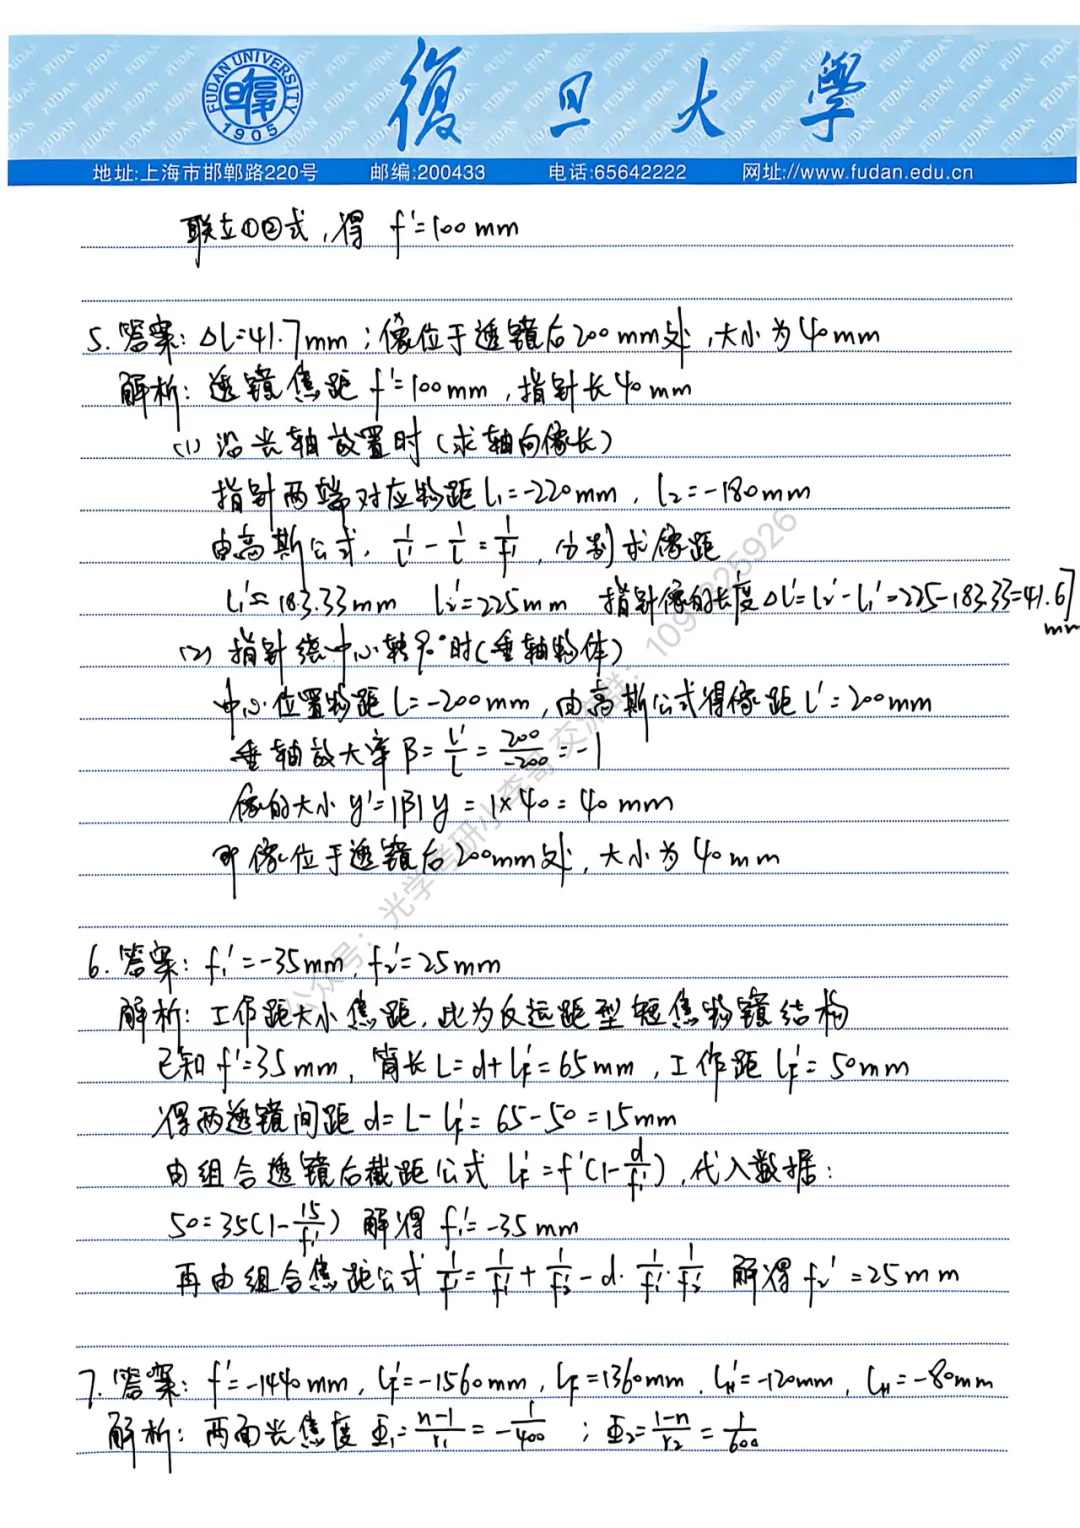 FUDAN UNIVERSITY
1905
復旦大學
地址:上海市邯郸路220号 邮编:200433 电话:65642222 网址://www.fudan.edu.cn
联立①②式,得 f'=100mm
5. 答案: ΔL=41.7mm;像位于透镜后200mm处,大小为40mm
解析: 透镜焦距 f'=100mm,指针长40mm
(1) 沿光轴放置时(求轴向像长)
指针两端对应物距 l₁=-220mm, l₂=-180mm
由高斯公式, 1/l' - 1/l = 1/f', 分别求像距
l₁'≈183.33mm l₂'=225mm 指针像的长度Δl'=l₂'-l₁'=225-183.33=41.67mm
(2) 指针绕中心转90°时(垂轴物体)
中心位置物距 l=-200mm,由高斯公式得像距 l'=200mm
垂轴放大率 β= l'/l = 200/-200 = -1
像的大小 y'=|β|y = 1×40 = 40mm
即像位于透镜后200mm处,大小为40mm
6. 答案: f₁'=-35mm, f₂'=25mm
解析: 工作距大小焦距,此为反远距型短焦物镜结构
已知 f'=35mm, 筒长 L=d+lF'=65mm,工作距 lF'=50mm
得两透镜间距 d=L-lF'=65-50=15mm
由组合透镜后截距公式 lF'=f'(1-d/f₁'),代入数据:
50=35(1-15/f₁') 解得 f₁'=-35mm
再由组合焦距公式 1/f' = 1/f₁' + 1/f₂' - d·1/f₁'·1/f₂' 解得 f₂'=25mm
7. 答案: f'=-1440mm, lF'=-1560mm, lF=1360mm, lH'=-120mm, lH=-80mm
解析: 两面光焦度 Φ₁= n-1/r₁ = -1/400 ; Φ₂= 1-n/r₂ = 1/600
公众号:光学考研小李哥 交流群: